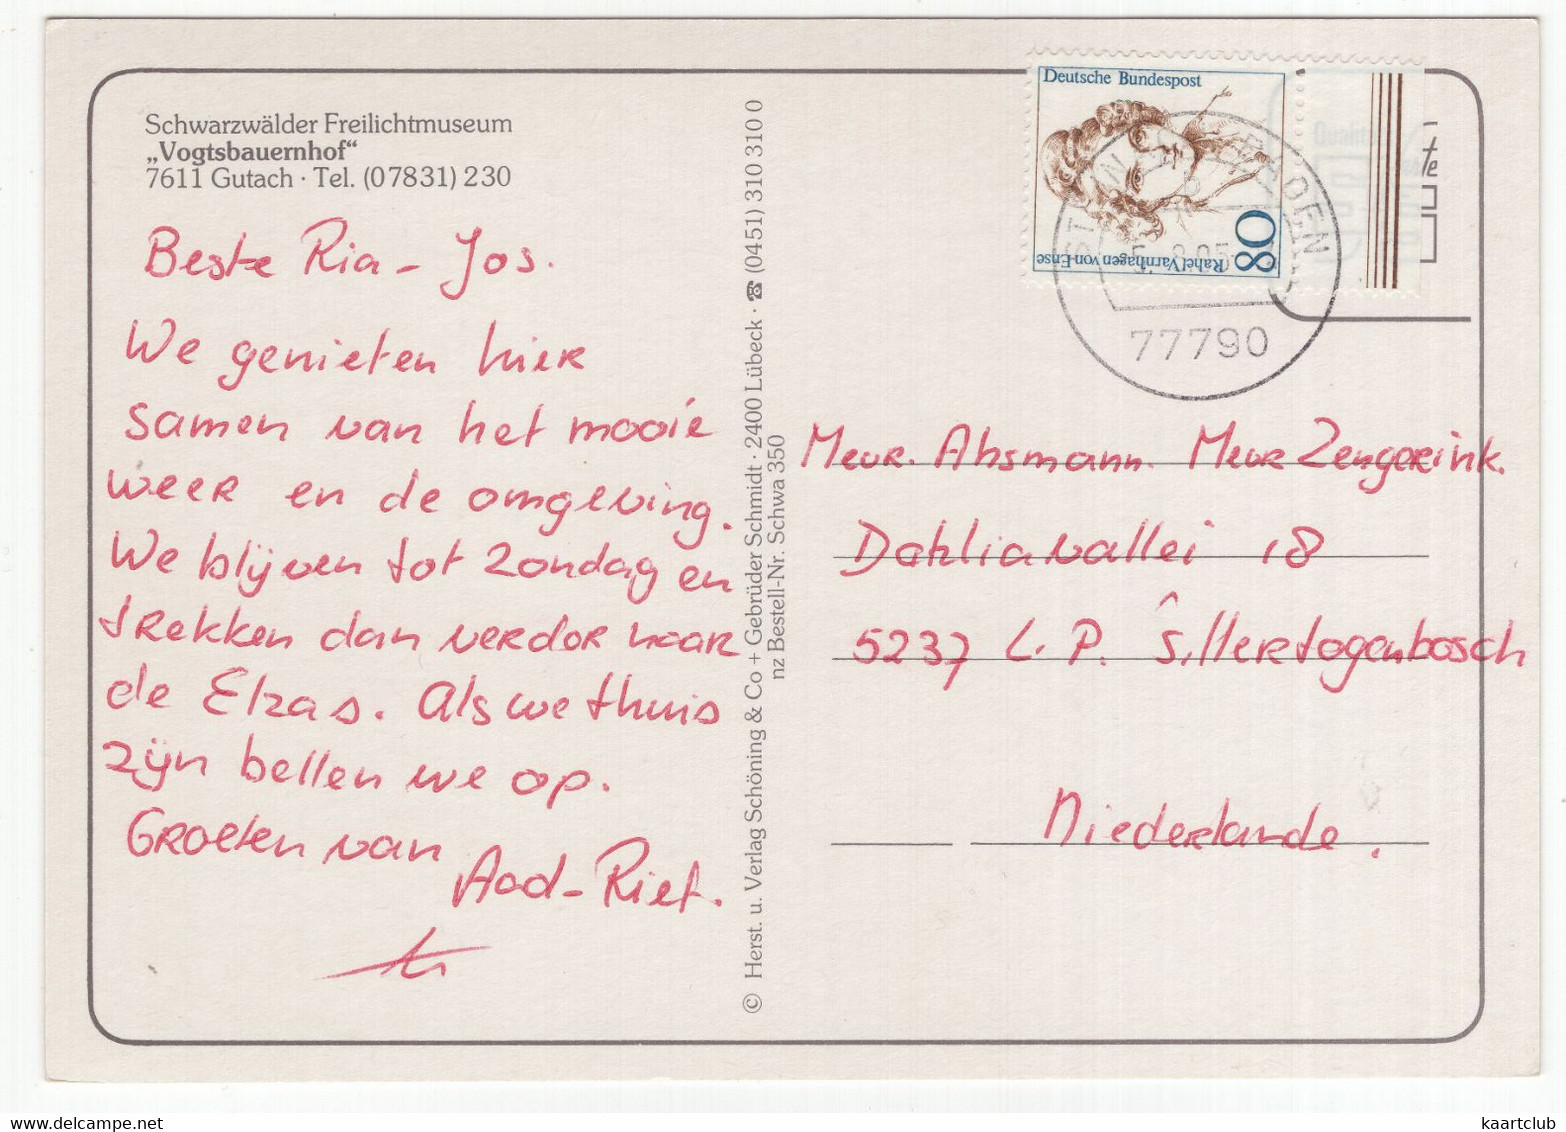 Schwarzwälder Freilichtmuseum
„Vogtsbauernhof“
7611 Gutach · Tel. (07831) 230
Beste Ria - Jos.
We genieten hier
samen van het mooie
weer en de omgeving.
We blijven tot zondag en
trekken dan verdor naar
de Elzas. Als we thuis
zijn bellen we op.
Groeten van
Aad - Riet.
© Herst. u. Verlag Schöning & Co + Gebrüder Schmidt · 2400 Lübeck · ☎ (0451) 310 310 0
nz Bestell-Nr. Schwa 350
Deutsche Bundespost
80
Rahel Varnhagen von Ense
77790
Mevr. Absmann. Mevr Zengerink.
Dahliavallei 18
5237 L.P. S. Hertogenbosch
Niederlande.
kaartclub